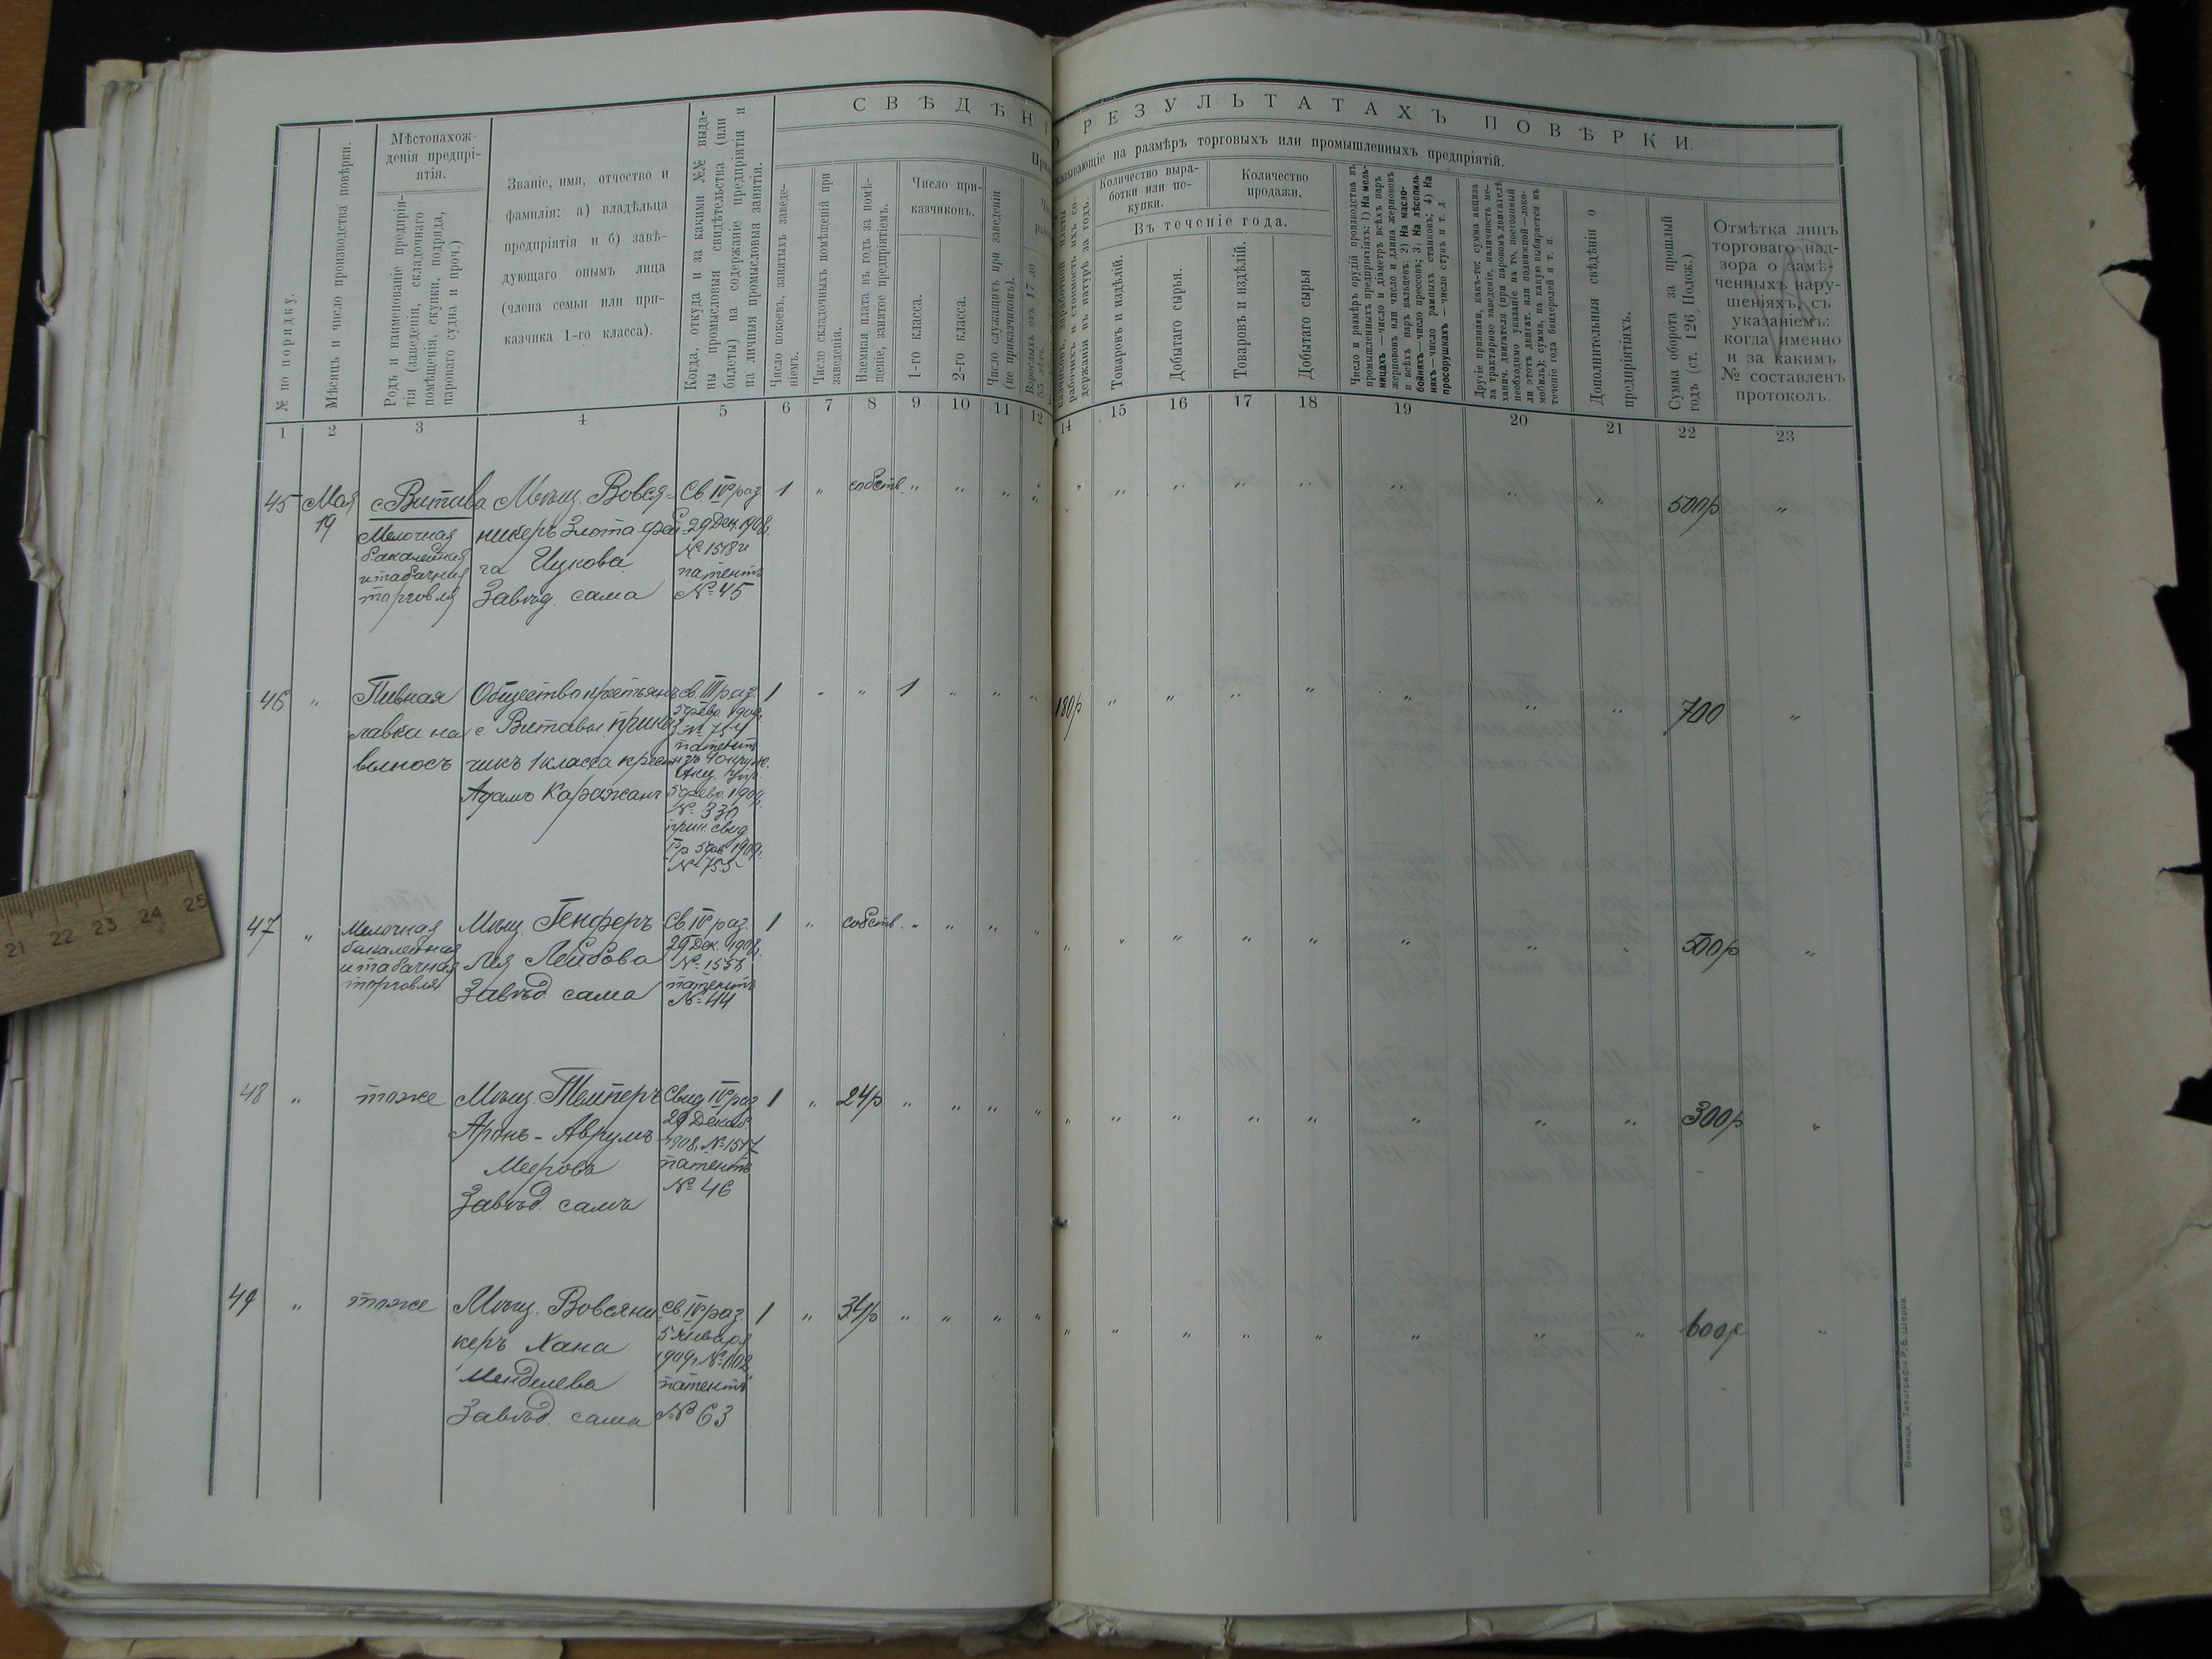 СВѢДѢН
О РЕЗУЛЬТАТАХЪ ПОВѢРКИ.
Приз
указывающіе на размѣръ торговыхъ или промышленныхъ предпріятій.
№ по порядку.
Мѣсяцъ и число производства повѣрки.
Мѣстонахож-
денія предпрі-
ятія.
Родъ и наименованіе предпрія-
тія (заведенія, складочнаго
помѣщенія, скупки, подряда,
пароваго судна и проч.)
Званіе, имя, отчество и
фамилія: а) владѣльца
предпріятія и б) завѣ-
дующаго онымъ лица
(члена семьи или при-
казчика 1-го класса).
Когда, откуда и за какими №№ выда-
ны промысловыя свидѣтельства (или
билеты) на содержаніе предпріятія и
на личныя промысловыя занятія.
Число покоевъ, занятыхъ заведе-
ніемъ.
Число складочныхъ помѣщеній при
заведеніи.
Наемная плата въ годъ за помѣ-
щеніе, занятое предпріятіемъ.
Число при-
казчиковъ.
1-го класса.
2-го класса.
Число служащихъ при заведеніи
(не приказчиковъ).
Взрослыхъ отъ 17 до
55 лѣтъ.
казчиковъ, заработной платы
рабочихъ и стоимость ихъ со-
держанія въ натурѣ за годъ.
Количество выра-
ботки или по-
купки.
Количество
продажи.
Въ теченіе года.
Товаровъ и издѣлій.
Добытаго сырья.
Товаровъ и издѣлій.
Добытаго сырья
Число и размѣръ орудій производства въ
промышленныхъ предпріятіяхъ: 1) На мель-
ницахъ—число и діаметръ всѣхъ паръ
жернововъ или число и длина жернововъ
и всѣхъ паръ вальцевъ: 2) На масло-
бойняхъ—число прессовъ; 3) На лѣсопиль-
няхъ—число рамныхъ станковъ; 4) На
просорушкахъ—число ступъ и т. д.
Другіе признаки, какъ-то: сумма акциза
за трактирное заведеніе, наличность ме-
ханич. двигателя (при паровомъ двигателѣ
необходимо указаніе на то, постоянный
ли этотъ двигат. или подвижной—локо-
мобиль); сумма, на какую выбирается въ
теченіе года бандеролей и т. п.
Дополнительныя свѣдѣнія о
предпріятіяхъ.
Сумма оборота за прошлый
годъ (ст. 126 Полож.)
Отмѣтка лицъ
торговаго над-
зора о замѣ-
ченныхъ нару-
шеніяхъ, съ
указаніемъ:
когда именно
и за какимъ
№ составленъ
протоколъ.
1 2 3 4 5 6 7 8 9 10 11 12 14 15 16 17 18 19 20 21 22 23
45 Мая с. Витава Мѣщ. Вовся- Св. IV раз. 1 " собств. " " " " " " " " " " " " 500р "
19 Мелочная никеръ Злота 29 Дек. 1908.
бакалейная Ицкова № 1518 и
и табачная патентъ
торговля Завѣд. сама № 45
46 " Пивная Общество крестьянъ св. III раз. 1 - " 1 " " " 180р " " " " " " " 700 "
лавка на с. Витавы прикaз 5 февр. 1909г.
выносъ чикъ 1 класса крест. патентъ
Адамъ Каражанъ 5 февр. 1909.
№ 330
№ 755
47 " Мелочная Мѣщ. Генферъ Св. IV раз. 1 " собств. " " " " " " " " " " " " 500р "
бакалейная Лея Лейбова 29 Дек. 1908г.
и табачная № 1557
торговля Завѣд. сама патентъ
№ 44
48 " тоже Мѣщ. Темперъ Свид IV раз 1 " 24р " " " " " " " " " " " " 300р "
Аронъ-Аврумъ 29 Декаб
Меерова 1908, № 1517
патентъ
Завѣд. самъ № 46
49 " тоже Мѣщ. Вовсяни Св. IV раз. 1 " 34р " " " " " " " " " " " " 600р "
керъ Хана 5 января
Менделева патентъ
Завѣд. сама № 63
21 22 23 24 25
Винница, Типографія Р. Б. Шерра